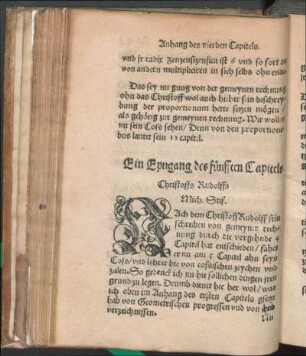 Anhang des vierden Capitels.
vnd jr radix zensizensica ist 6 vnd so fort an
von andern multiplicieren in sich selbs ohn ende.
Das sey nu gnug von der gemeynen rechnung
ohn das Christoff wol auch hieher sein beschrey
bung der proportionum hette setzen mögen/
als gehörig zur gemeynen rechnung. Wir wollen
nu sein Coss sehen/ Denn von den proportioni
bus lautet sein 12 capitel.
Ein Eyngang des fünfften Capitels
Christoffs Rudolffs
Mich. Stif.
NAch dem Christoff Rudolff sein
schreiben von gemeyner rech
nung durch die vergehnde 4
Capitel hat entschieden/ fähet
er nu am 5 Capitel ahn seyn
Coss/ vnd lehret hie von cossischen zeychen vnd
zalen. So gedenck ich nu hie söllichen dingen jren
grund zu legen. Drumb dienet hie her wol/ was
ich oben im Anhang des ersten Capitels gesetzt
hab von Geometrischen progressen vnd von jren
verzeichnissen.